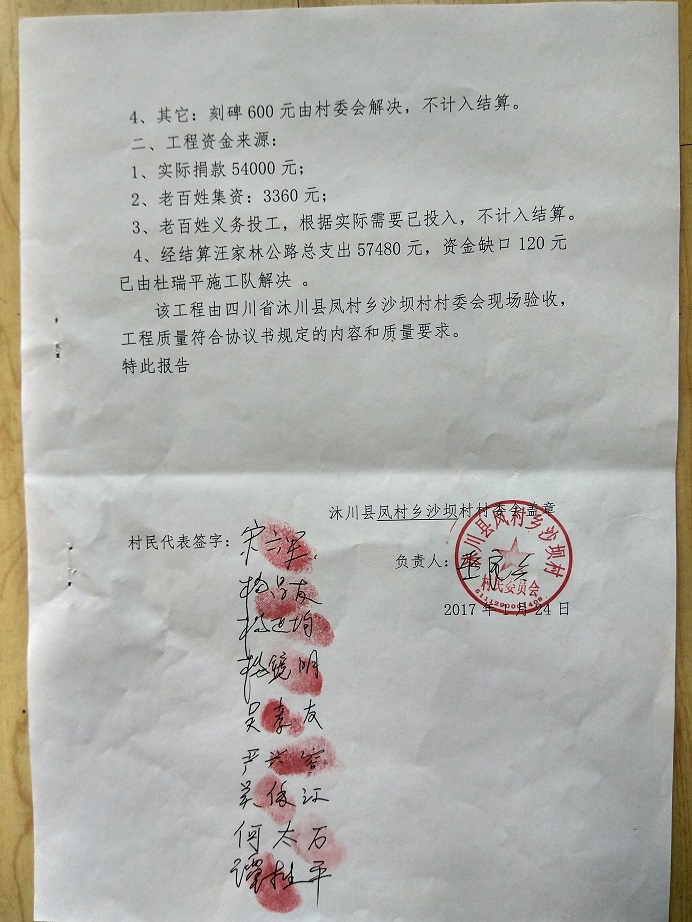 4、其它：刻碑600元由村委会解决，不计入结算。
二、工程资金来源：
1、实际捐款54000元；
2、老百姓集资：3360元；
3、老百姓义务投工，根据实际需要已投入，不计入结算。
4、经结算汪家林公路总支出57480元，资金缺口120元
已由杜瑞平施工队解决 。
该工程由四川省沐川县凤村乡沙坝村村委会现场验收，
工程质量符合协议书规定的内容和质量要求。
特此报告
沐川县凤村乡沙坝村村委会盖章
村民代表签字：
负责人：
沐川县凤村乡沙坝村
村民委员会
2017年1月24日
杨镜明
吴孝友
何太万